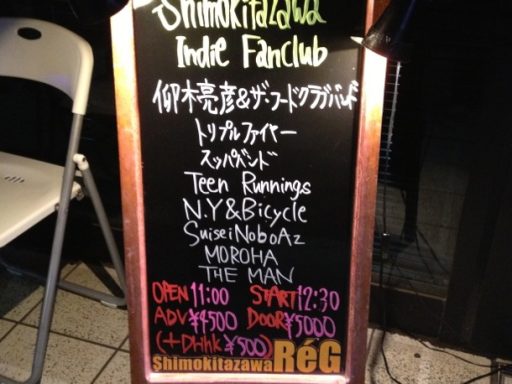 Shimokitazawa
Indie Fanclub
仰木亮彦&ザ・フードクラブバンド
トリプルファイヤー
スッパバンド
Teen Runnings
N.Y&Bicycle
SuiseiNoboAz
MOROHA
THE MAN
OPEN 11:00 START 12:30
ADV ¥4500 DOOR ¥5000
(+DHhk ¥500)
Shimokitazawa RéG